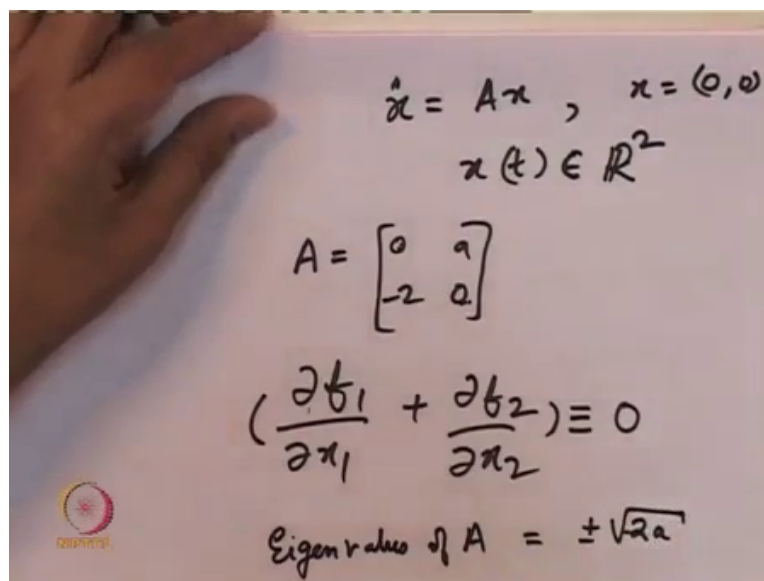 ẋ = Ax , x = (0,0)
x(t) ∈ ℝ²
A = [0 a
-2 0]
(∂f₁/∂x₁ + ∂f₂/∂x₂) ≡ 0
Eigenvalues of A = ±√2a
NPTEL